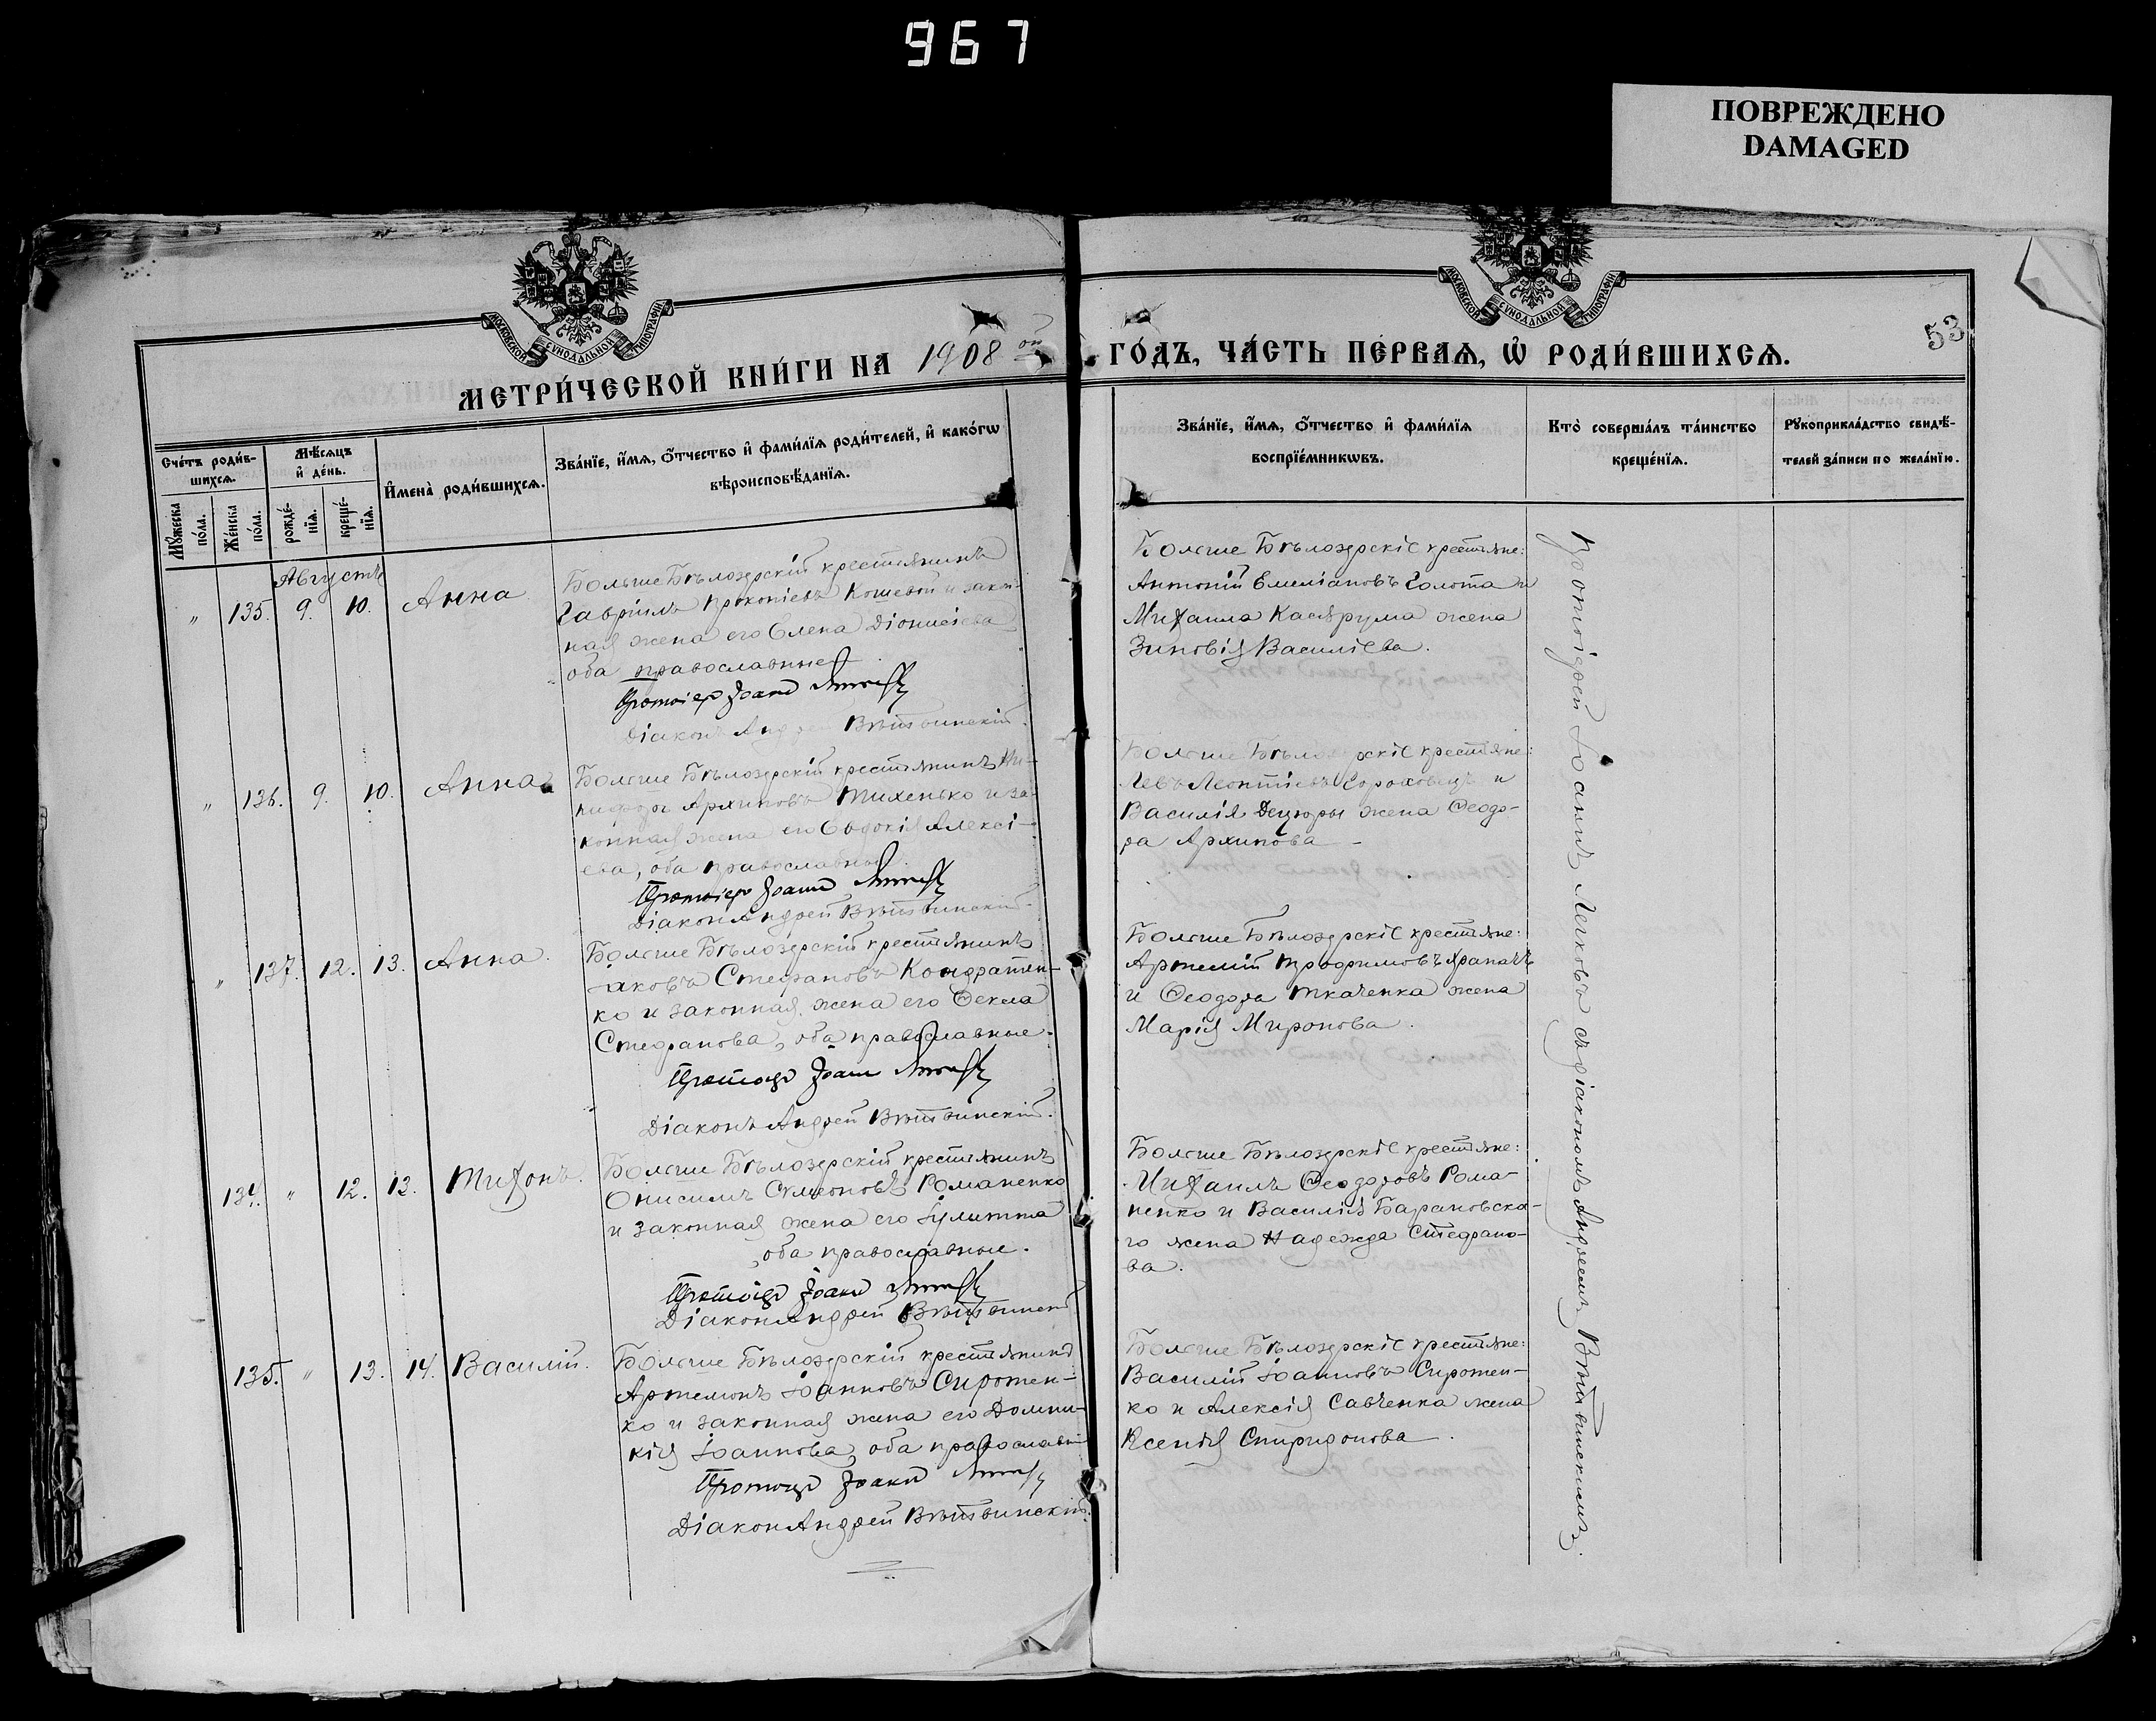 967
ПОВРЕЖДЕНО
DAMAGED
МОСКОВСКОЙ СѴНОДАЛЬНОЙ ТИПОГРАФІИ
МОСКОВСКОЙ СѴНОДАЛЬНОЙ ТИПОГРАФІИ
53
МЕТРИ́ЧЕСКОЙ КНИ́ГИ НА 1908 ой ГО́ДЪ, ЧА́СТЬ ПЕ́РВАѦ, Ѡ҆ РОДИ́ВШИХСѦ.
Сче́тъ роди́в-
шихсѧ.
Мꙋ́жеска по́ла.
Же́нска по́ла.
Мѣ́сѧцъ и҆ де́нь.
рожде́-
нїѧ.
креще́-
нїѧ.
И҆мена̀ роди́вшихсѧ.
Зва́нїе, и҆́мѧ, ѻ҆́тчество и҆ фами́лїѧ роди́телей, и҆ како́гѡ
вѣроисповѣ́данїѧ.
Зва́нїе, и҆́мѧ, ѻ҆́тчество и҆ фами́лїѧ
воспрїе́мникѡвъ.
Кто̀ соверша́лъ та́инство
креще́нїѧ.
Рꙋкоприкла́дство свидѣ́-
телей за́писи по жела́нїю.
Августъ
" 135. 9. 10. Анна
Больше Бѣлозерскій крестьянинъ
Гавріилъ Прокопіевъ Кошевой и закон-
ная жена его Елена Діонисіева
оба православные
Протоіер Іоанн
Діаконъ Андрей Вѣтвинскій.
Больше Бѣлозерскіе крестьяне:
Антоній Емеліановъ Голота и
Михаила жена
Зиновія Василіева.
" 136. 9. 10. Анна
Больше Бѣлозерскій крестьянинъ Ни-
кифоръ Архиповъ Тихенько и за-
конная жена его Евдокія Алексі-
ева, оба православные.
Протоіер Іоанн
Діаконъ Андрей Вѣтвинскій.
Больше Бѣлозерскіе крестьяне:
Левъ Леонтіевъ Гороховецъ и
Василія Децюры жена Ѳеодо-
ра Архипова
" 137. 12. 13. Анна.
Больше Бѣлозерскій крестьянинъ
Іаковъ Стефановъ Кондратен-
ко и законная жена его Ѳекла
Стефанова, оба православные.
Протоіер Іоанн
Діаконъ Андрей Вѣтвинскій.
Больше Бѣлозерскіе крестьяне:
Артемій Трофимовъ Храпачъ
и Ѳеодора Ткаченка жена
Марія Миронова.
134. " 12. 13. Тихонъ.
Больше Бѣлозерскій крестьянинъ
Онисимъ Сѵмеоновъ Романенко
и законная жена его Іулитта
оба православные.
Протоіер Іоанн
Діаконъ Андрей Вѣтвинскій
Больше Бѣлозерскіе крестьяне:
Михаилъ Ѳеодоровъ Рома-
ненко и Василія Барановска-
го жена Надежда Стефано-
ва.
135. " 13. 14. Василій.
Больше Бѣлозерскій крестьянинъ
Артемонъ Іоанновъ Сиротен-
ко и законная жена его Домни-
кія Іоаннова, оба православн
Протоіер Іоанн
Діаконъ Андрей Вѣтвинскій.
Больше Бѣлозерскіе крестьяне:
Василій Іоанновъ Сиротен-
ко и Алексія Савченка жена
Ксенія Спиридонова.
Протоіерей Іоаннъ съ діакономъ Андреемъ Вѣтвинскимъ.